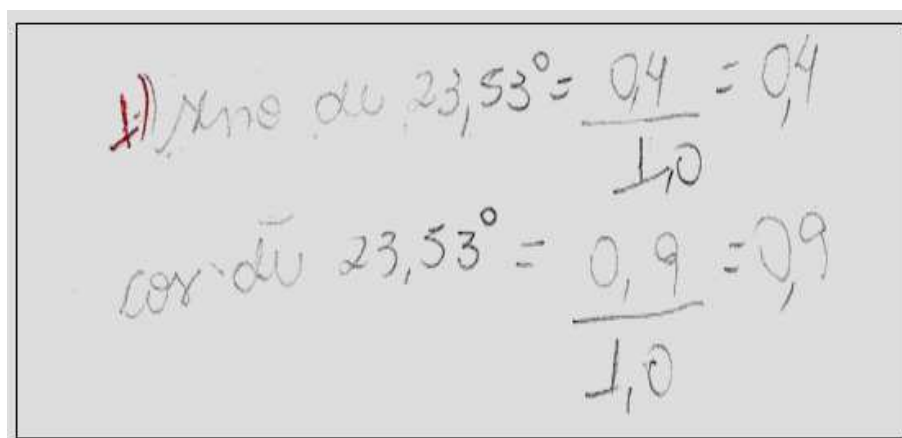 1) seno de 23,53° = 0,4 / 1,0 = 0,4
cos de 23,53° = 0,9 / 1,0 = 0,9